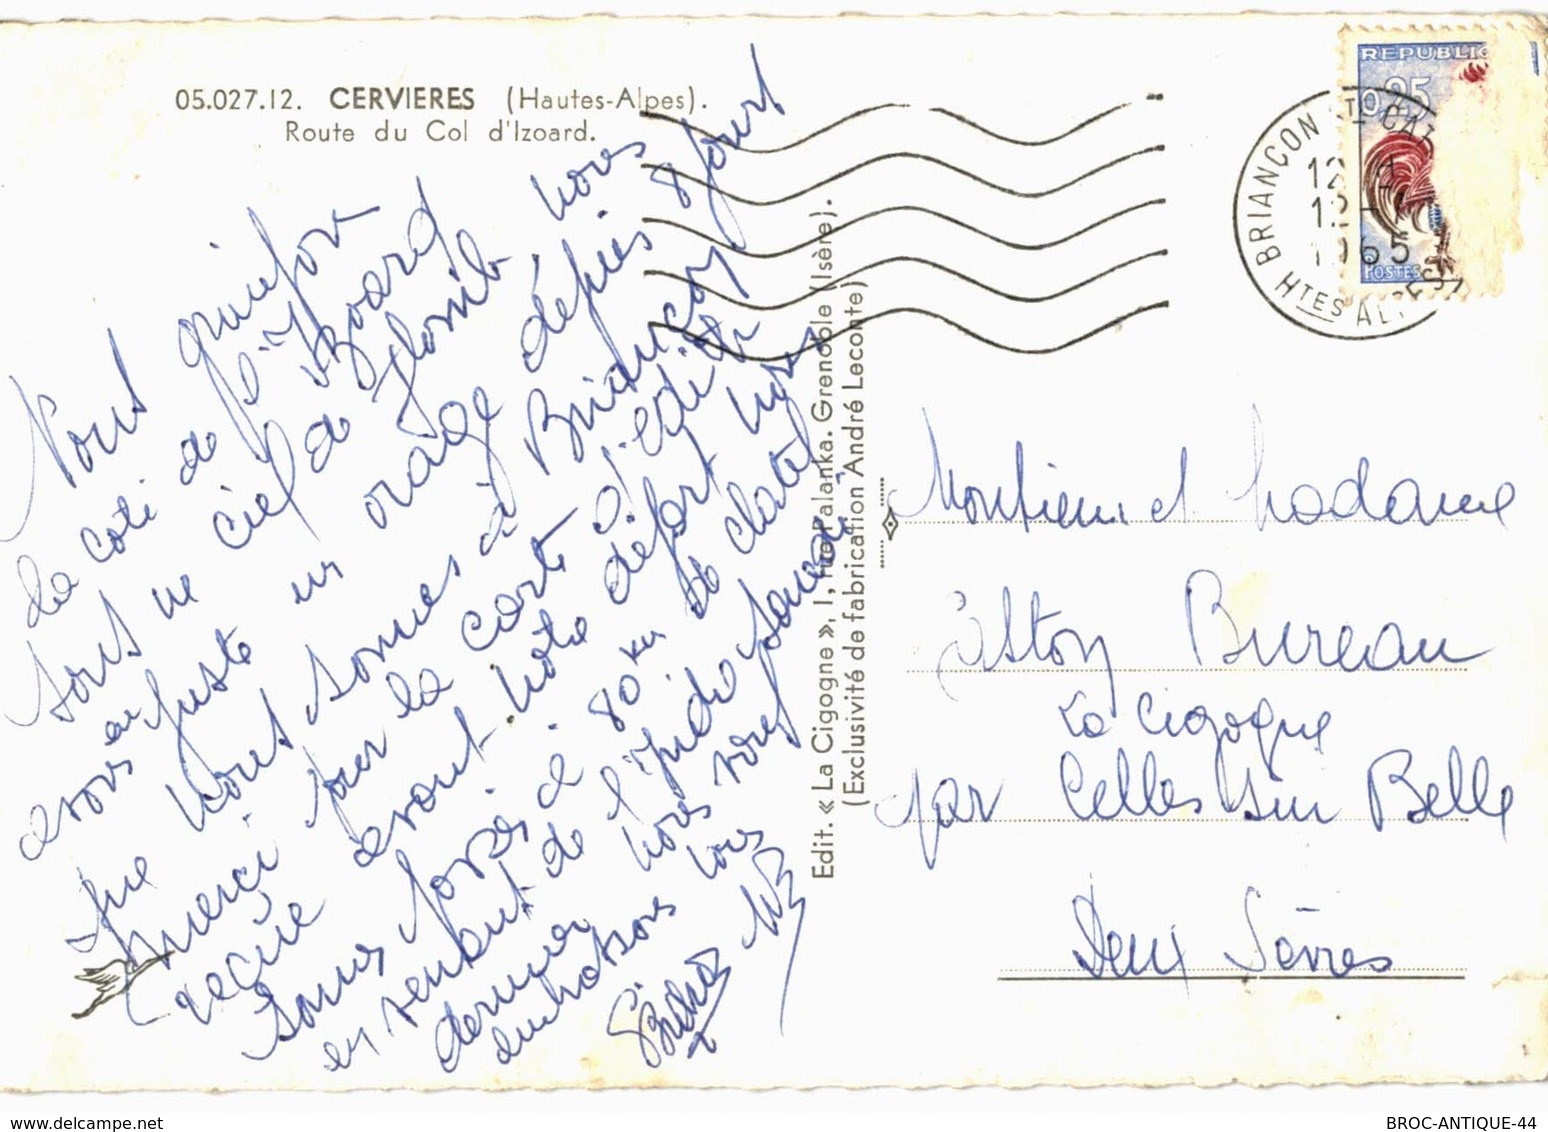 05.027.12. CERVIERES (Hautes-Alpes).
Route du Col d'Izoard.
Nous grimpons
la coti de l'Izoard
sous un ciel de plomb nous
avons eu juste un orage depuis 8 jours
que nous sommes à Briançon
merci pour la carte d'Edith
reçue avant notre départ nous
sommes passés à 80 km de
en revenant de
dernier nous vous
embrassons tous
Edit. « La Cigogne », 1, rue Palanka. Grenoble (Isère).
(Exclusivité de fabrication André Leconte)
REPUBLIQ
0,25
POSTES
BRIANCON
12 H
12 -
1965
HTES ALPES
Monsieur et Madame
Gaston Bureau
La Cigogne
par Celles sur Belle
Deux Sèvres
BROC-ANTIQUE-44